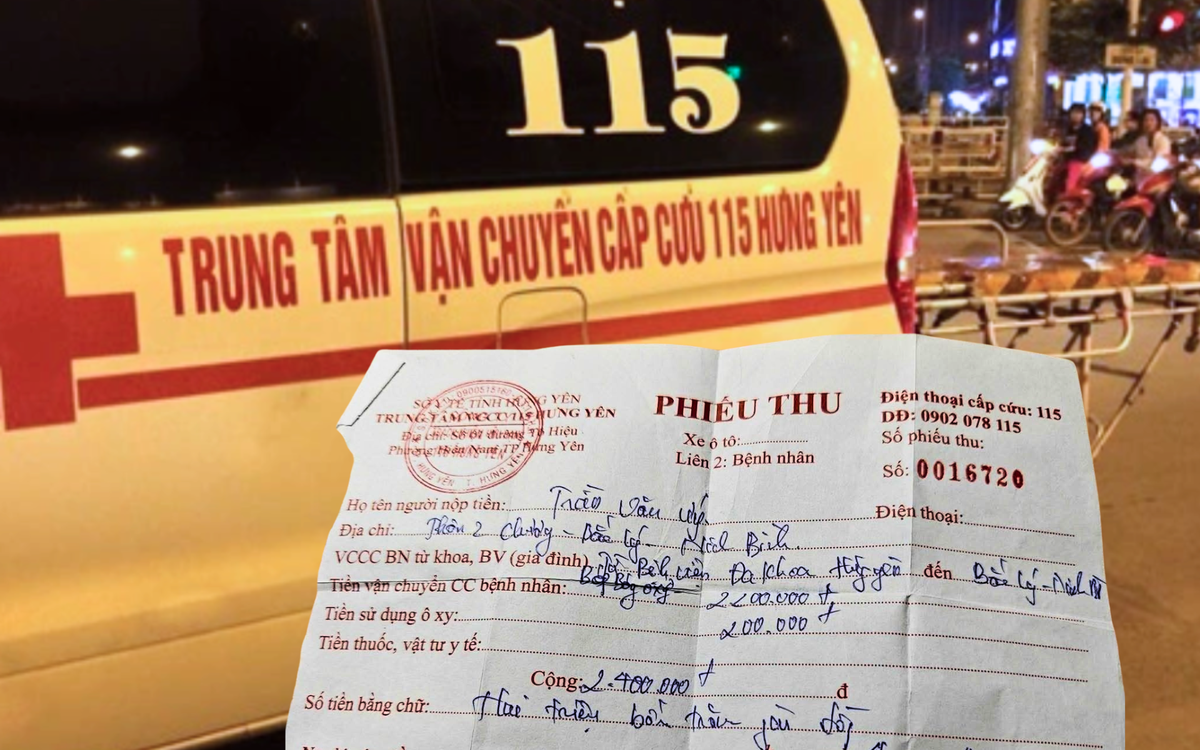 115
TRUNG TÂM VẬN CHUYỂN CẤP CỨU 115 HƯNG YÊN
SỞ Y TẾ TỈNH HƯNG YÊN
TRUNG TÂM VCCC 115 HƯNG YÊN
Địa chỉ: Số 01 đường Tô Hiệu
Phường Hiến Nam TP Hưng Yên
PHIẾU THU
Xe ô tô:
Liên 2: Bệnh nhân
Điện thoại cấp cứu: 115
DĐ: 0902 078 115
Số phiếu thu:
Số: 0016720
Họ tên người nộp tiền: Trần Văn
Điện thoại:
Địa chỉ: Thôn 2 - Bắc Lý - Ninh Bình
VCCC BN từ khoa, BV (gia đình) Từ Bệnh viện Đa khoa Hưng yên đến Bắc Lý - Ninh
Tiền vận chuyển CC bệnh nhân: 2200.000 đ
Tiền sử dụng ô xy: 200.000 đ
Tiền thuốc, vật tư y tế:
Cộng: 2.400.000 đ đ
Số tiền bằng chữ: Hai triệu bốn trăm